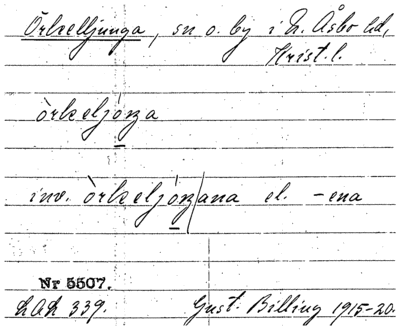 Örkelljunga, sn o. by i N. Åsbo hd,
Krist. l.
òrkeljóŋa
inv. òrkeljóŋ/ana el. -ena
Nr 5507.
LAL 339. Gust. Billing 1915-20.